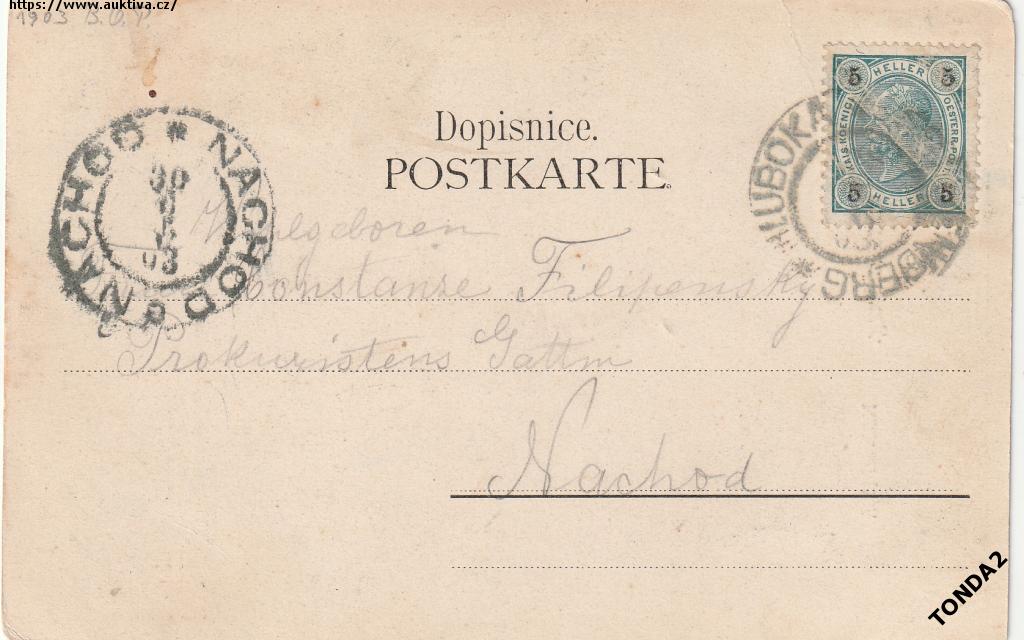 https://www.auktiva.cz/
1903 B.O.P.
Dopisnice.
POSTKARTE.
NACHOD * NACHOD
03
HLUBOKA
BERG *
5 HELLER 5
KAIS. KOENIGL.
OESTERR. POST
5 HELLER 5
Constanze Filipensky
Prokuristens Gattin
Nachod
TONDA2